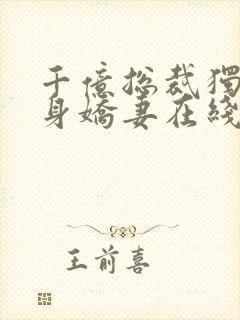 千億總裁獨
身嬌妻在綫
王前喜